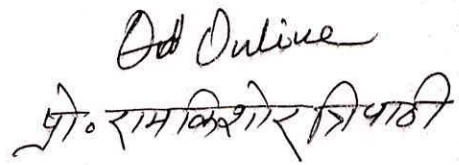 Online
प्रो० रामकिशोर त्रिपाठी